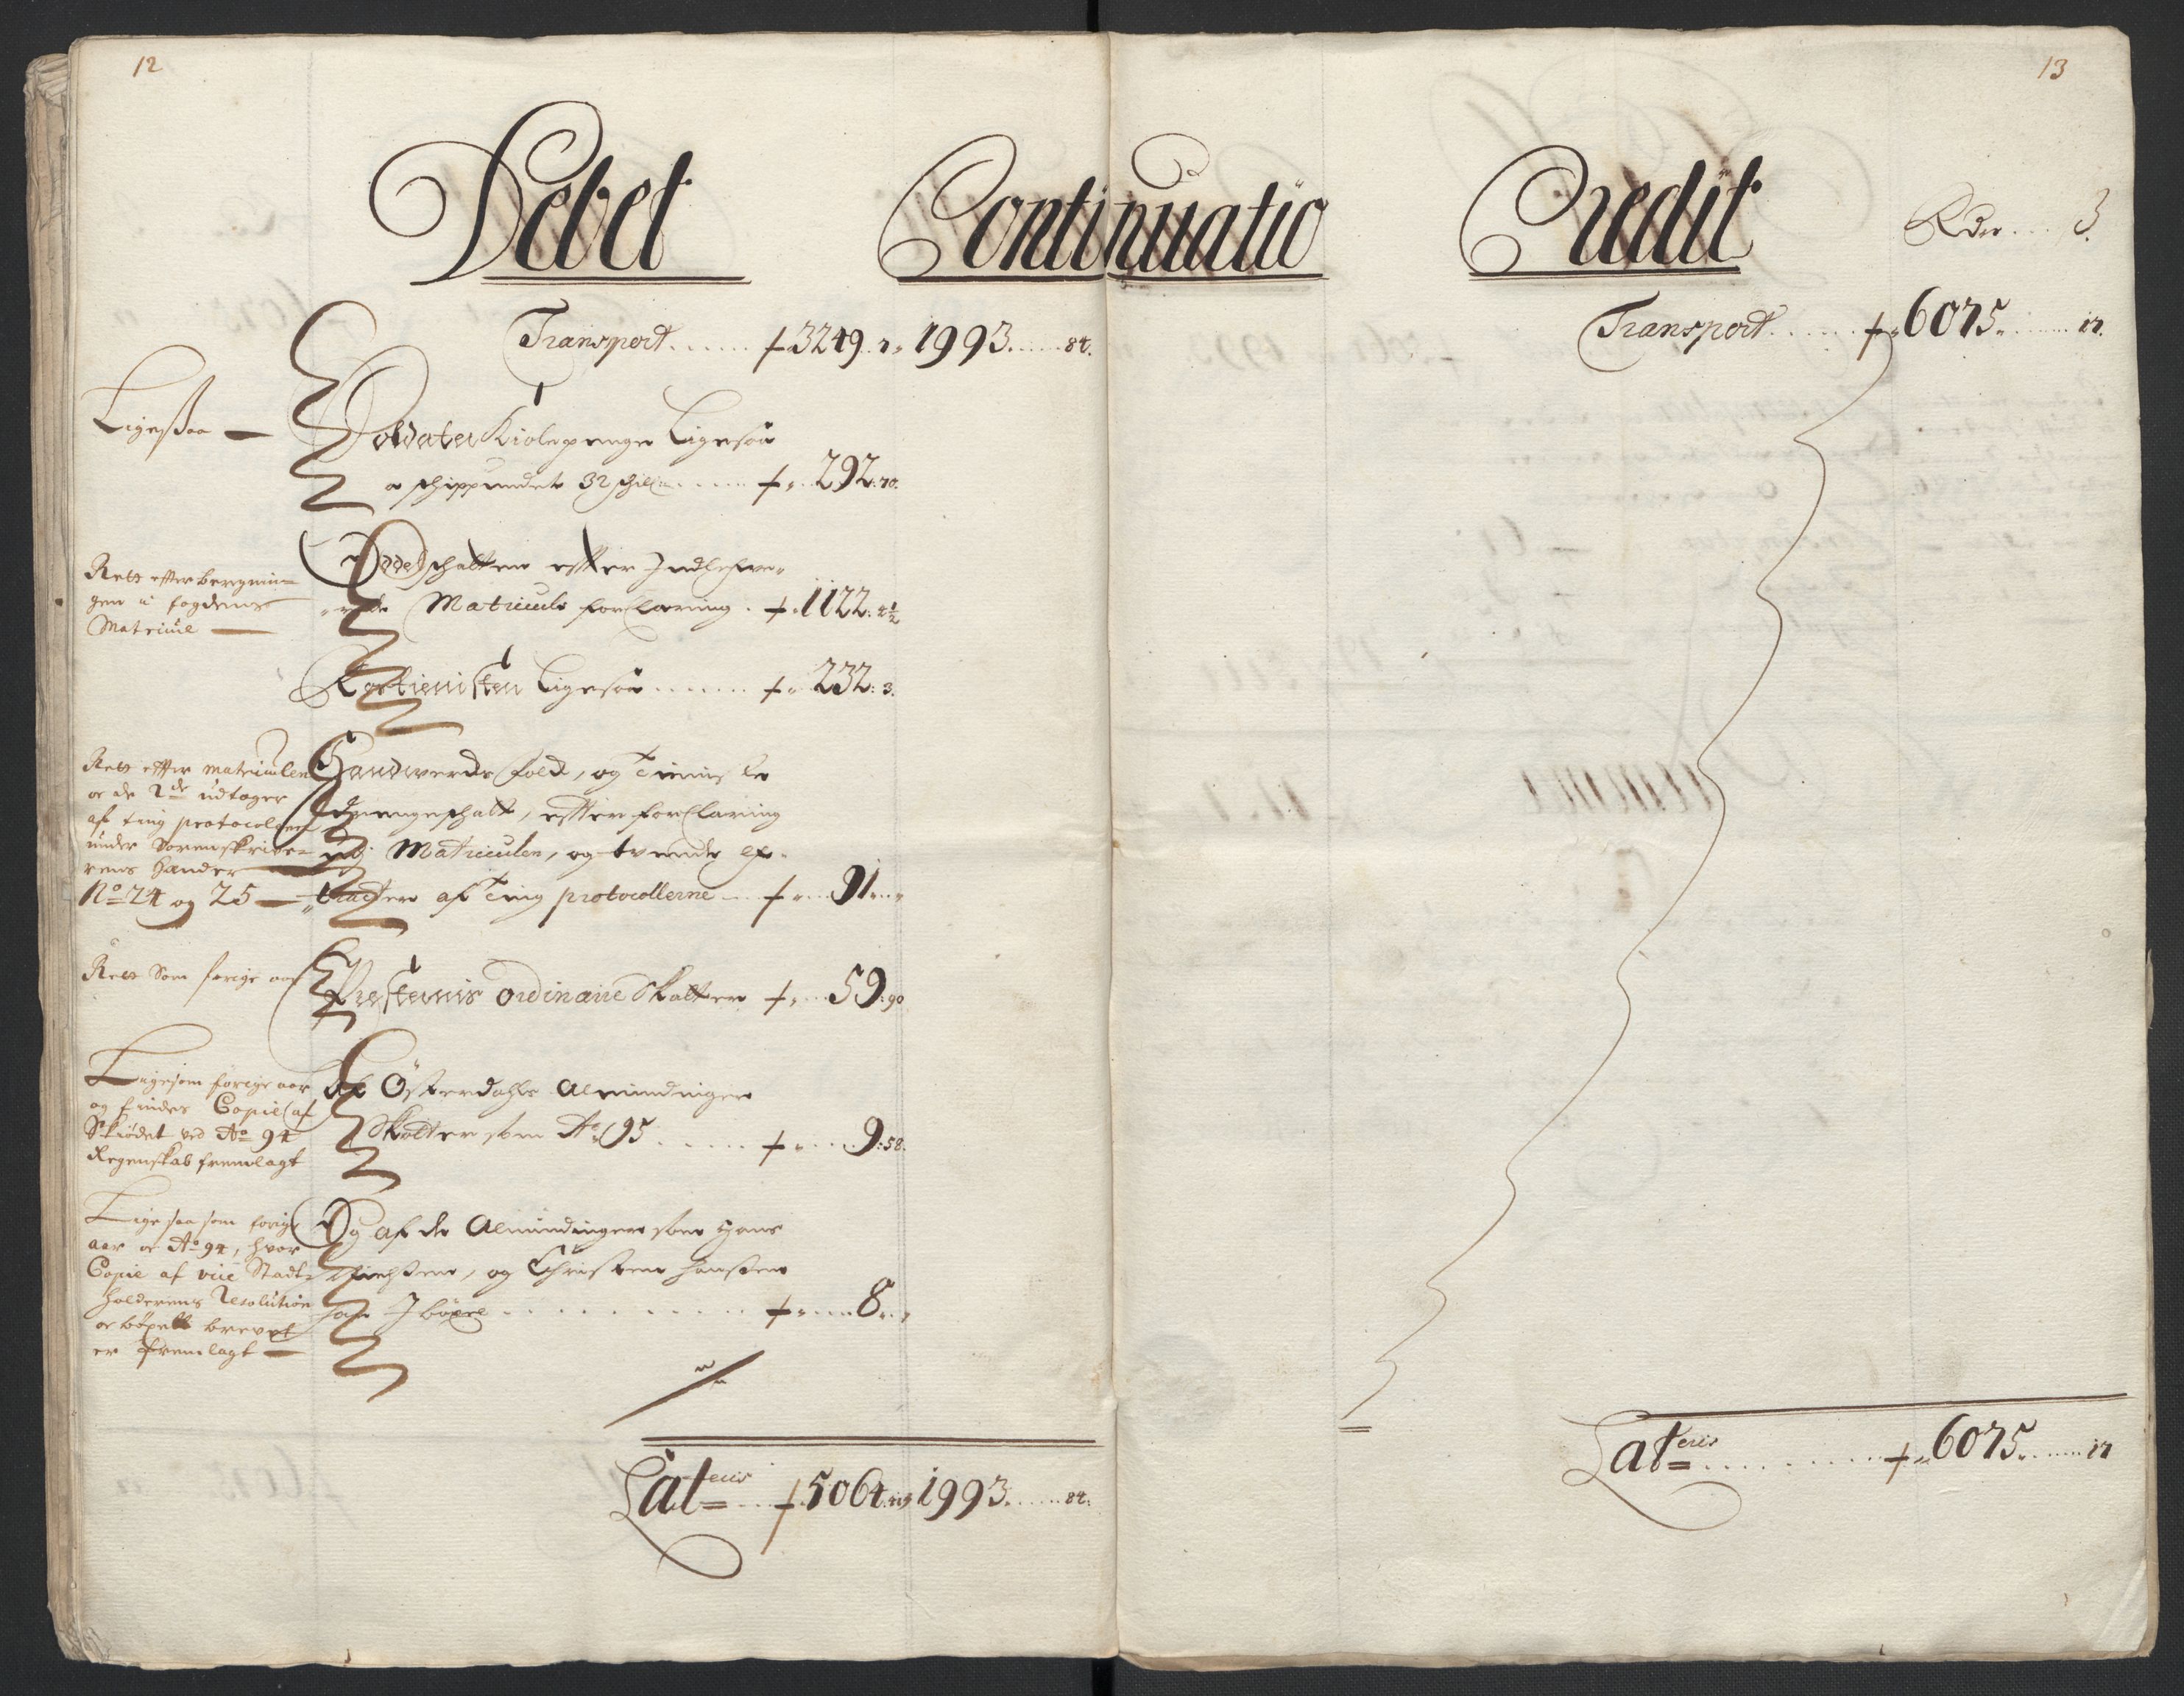 12
13
Debet Continuatio Credit
Rdr .... β.
Transport ...... 3249. 7. 1993 ..... 84.
Transport ...... 6075 ...... 17.
Ligesaa —
Soldater Kiolepenge Ligesaa
a schippundet 32 schill ..... 292: 70.
Rett effter beregnin=
gen i fogdens
Matricul —
Oddel schatten effter Indlefwe=
rede Matriculs forClaring . 1122: 4½
Kortienisten Ligesaa ...... 232: 3.
Rett effter matriculen
oc de 2de udtoger
af ting protocollen
under Sorenskrive=
rens Hænder
No 24 og 25 —
Handwerchsfolch, og tieniste
drengeschatt, effter forClaring
udj Matriculen, og tvende ex=
tracter af Ting protocollerne ... 91 ...
Rett Som forige aar
Presternis Ordinarie Skatter .... 59: 90
Ligesom forige aar
og findes Copie af
Skiødet ved Ao 94
Regenskab fremlagt
Af Østerdahls Alminding
Skatter som Ao 95 ..... 9: 58.
Lige saa som forige
aar oc Ao 94, hvor
Copie af vice Stadt=
holderens Resolution
oc böxell brevet
er fremlagt —
Og af de Almindinger som Hans
, og Christen Hansen
har I böxel ........... 8 ..
Lateris ... 5064: 1993 ...... 84.
Lateris ......... 6075 ...... 17